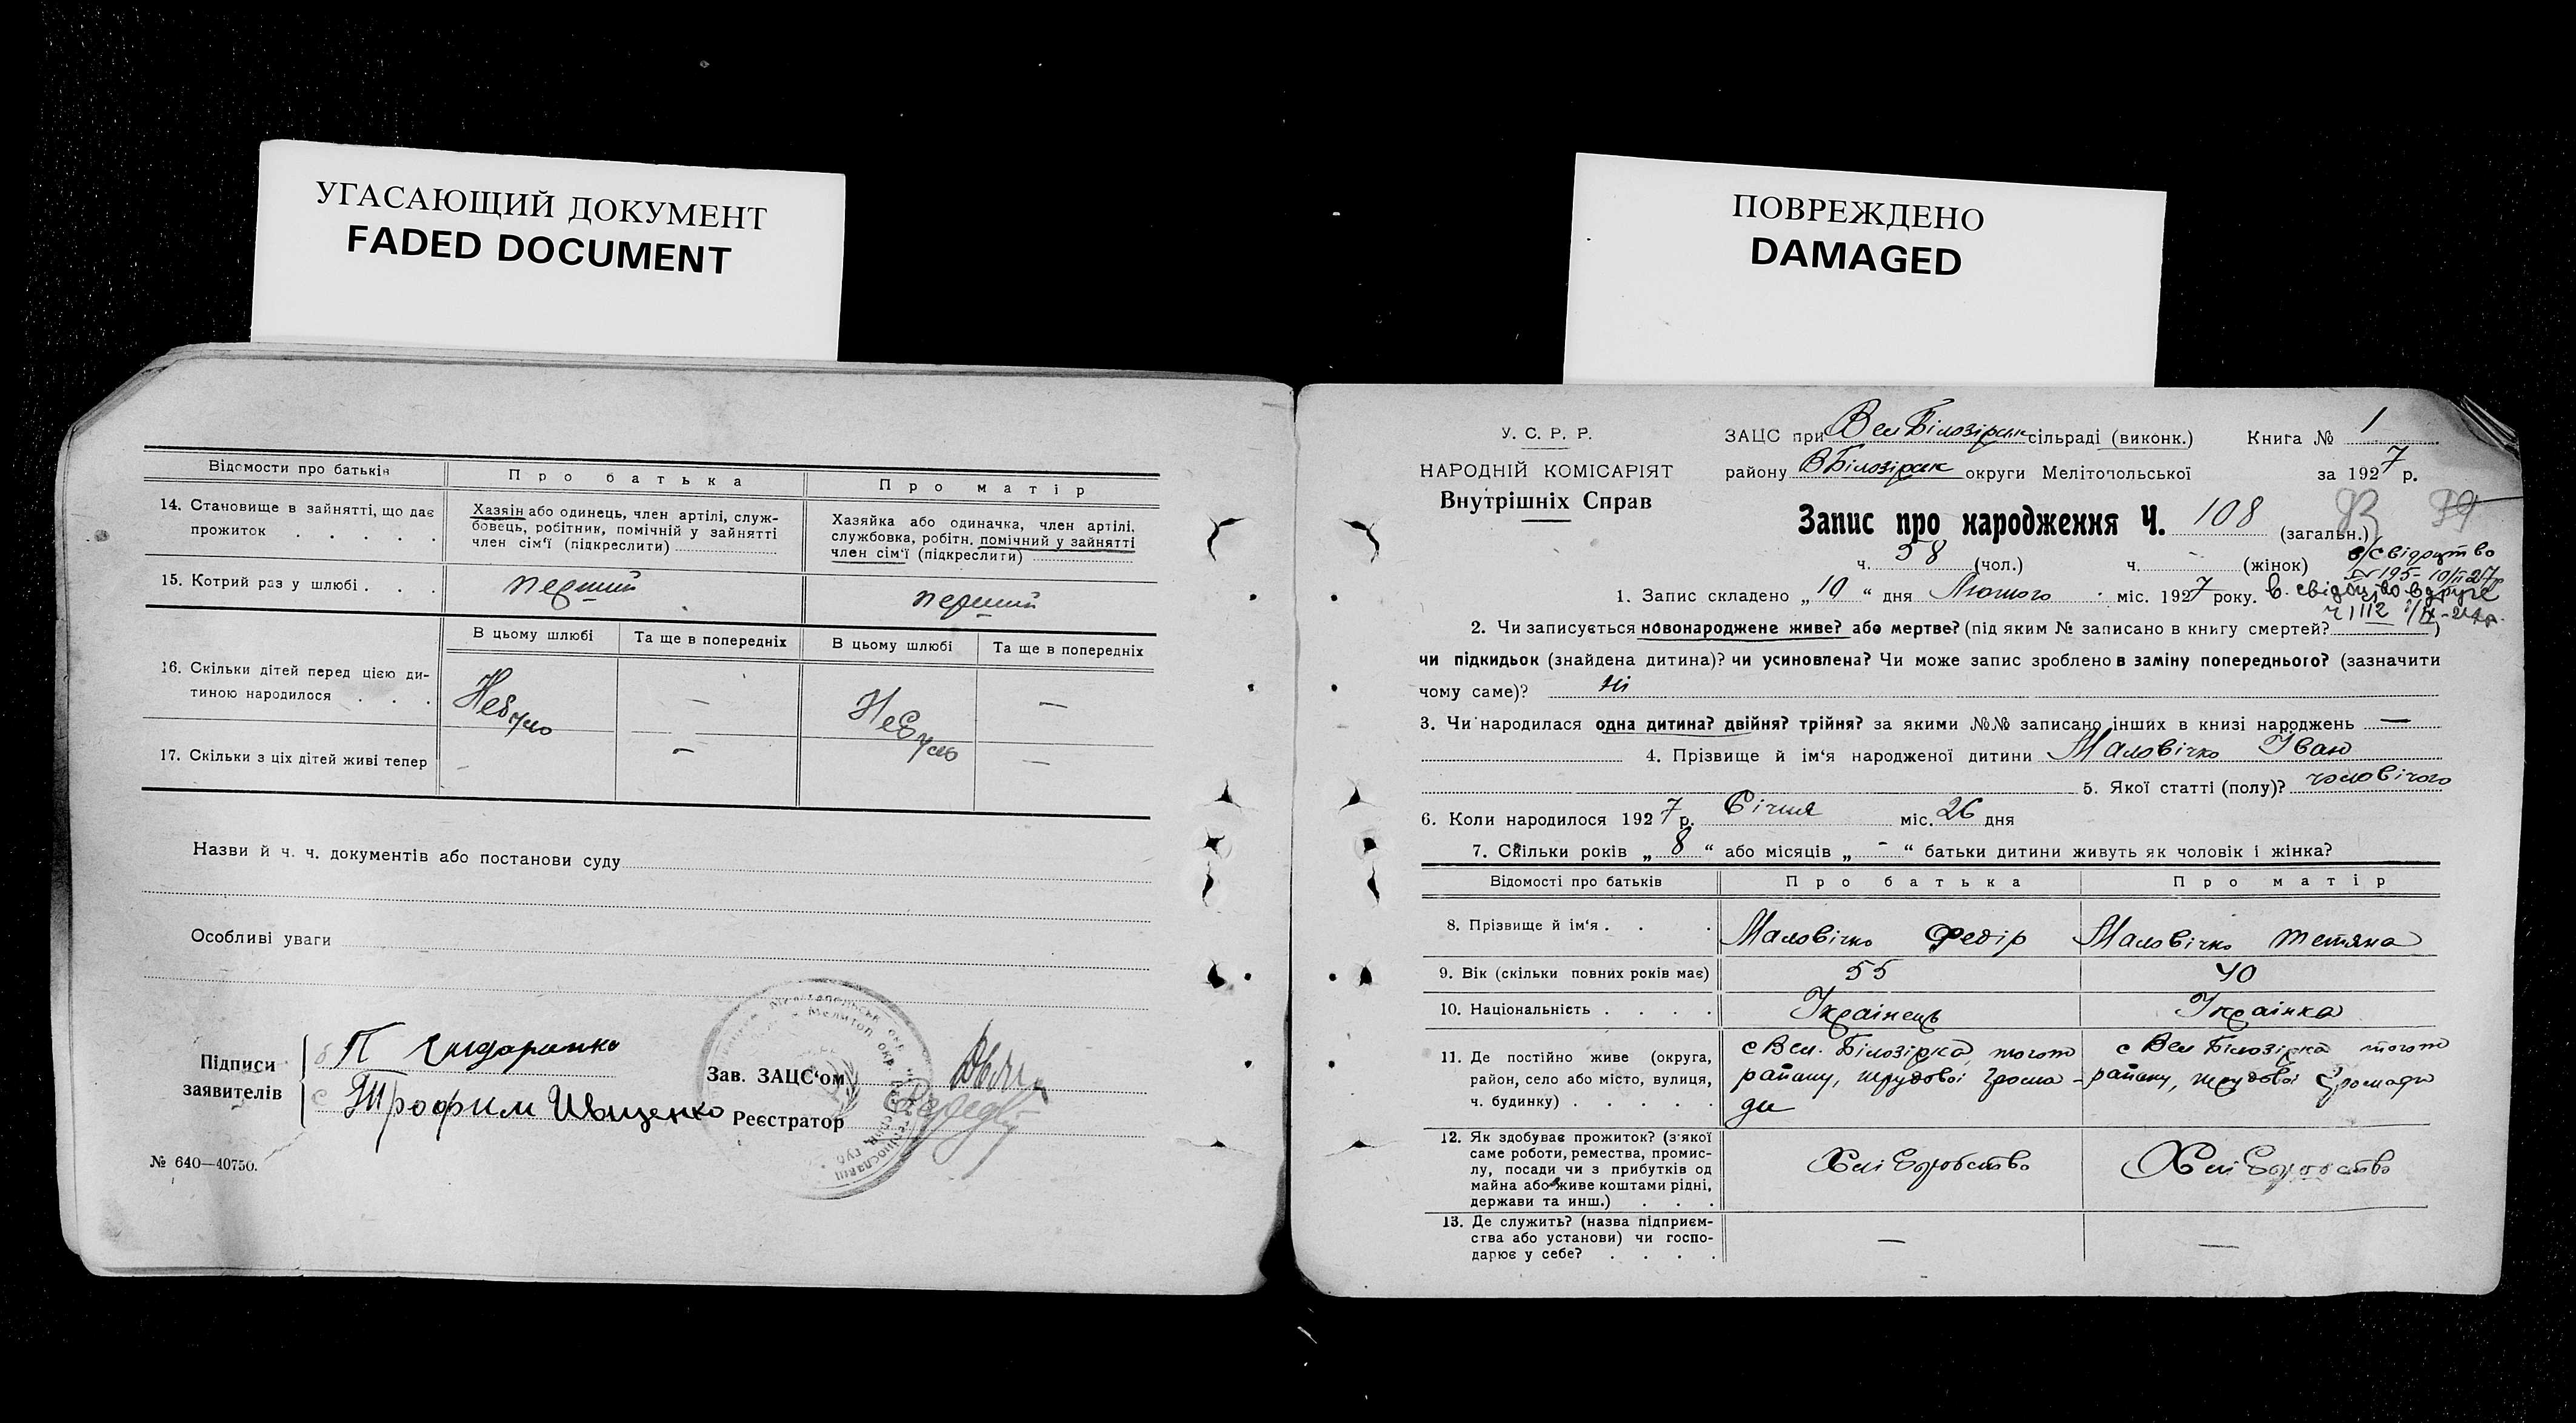 УГАСАЮЩИЙ ДОКУМЕНТ
FADED DOCUMENT
Відомости про батьків
Про батька
Про матір
14. Становище в зайнятті, що дає
прожиток . . . . .
Хазяін або одинець, член артілі, служ-
бовець, робітник, помічній у зайнятті
член сім'ї (підкреслити)
Хазяйка або одиначка, член артілі,
службовка, робітн. помічний у зайнятті
член сім'ї (підкреслити)
15. Котрий раз у шлюбі . . .
перший
перший
В цьому шлюбі
Та ще в попередніх
В цьому шлюбі
Та ще в попередніх
16. Скільки дітей перед цією ди-
тиною народилося . . .
Небуло
—
Небуло
—
17. Скільки з ціх дітей живі тепер
-
—
—
Назви й ч. ч. документів або постанови суду
Особливі уваги
Підписи
заявителів
П
Трофим Иващенко
Зав. ЗАЦС'ом
Реєстратор
№ 640—40750.
ПОВРЕЖДЕНО
DAMAGED
У. С. Р. Р.
НАРОДНІЙ КОМІСАРІЯТ
Внутрішніх Справ
ЗАЦС при Вел Білозірськ сільраді (виконк.) Книга № 1
району ВБілозірськ округи Мелітопольської за 1927 р.
93 39
Запис про народження Ч. 108 (загальн.)
ч. 58 (чол.) ч. - (жінок)
№ 195- 10/II 27
1. Запис складено „10“ дня Лютого міс. 1927 року.
в. свідоцтво вдруге
ч 1112
2. Чи записується новонароджене живе? або мертве? (під яким № записано в книгу смертей? )
чи підкидьок (знайдена дитина)? чи усиновлена? Чи може запис зроблено в заміну попереднього? (зазначити
чому саме)? ні
3. Чи народилася одна дитина? двійня? трійня? за якими №№ записано інших в книзі народжень —
4. Прізвище й ім'я народженої дитини Маловічко Іван
5. Якої статті (полу)? чоловічого
6. Коли народилося 1927 р. Січня міс. 26 дня
7. Скільки років „8“ або місяців „-“ батьки дитини живуть як чоловік і жінка?
Відомості про батьків
Про батька
Про матір
8. Прізвище й ім'я . . .
Маловічко Федір
Маловічко Тетяна
9. Вік (скільки повних років має)
55
40
10. Національність . . . .
Українець
Українка
11. Де постійно живе (округа,
район, село або місто, вулиця,
ч. будинку) . . . . .
с Вел. Білозірка, того ж
району, трудової грома-
ди
с Вел Білозірка того ж
району, трудової громади
12. Як здобуває прожиток? (з'якої
саме роботи, ремества, промис-
лу, посади чи з прибутків од
майна або живе коштами рідні,
держави та инш.) . . .
Хліборобство
Хліборобство
13. Де служить? (назва підприєм-
ства або установи) чи госпо-
дарює у себе? . . . .
—
—